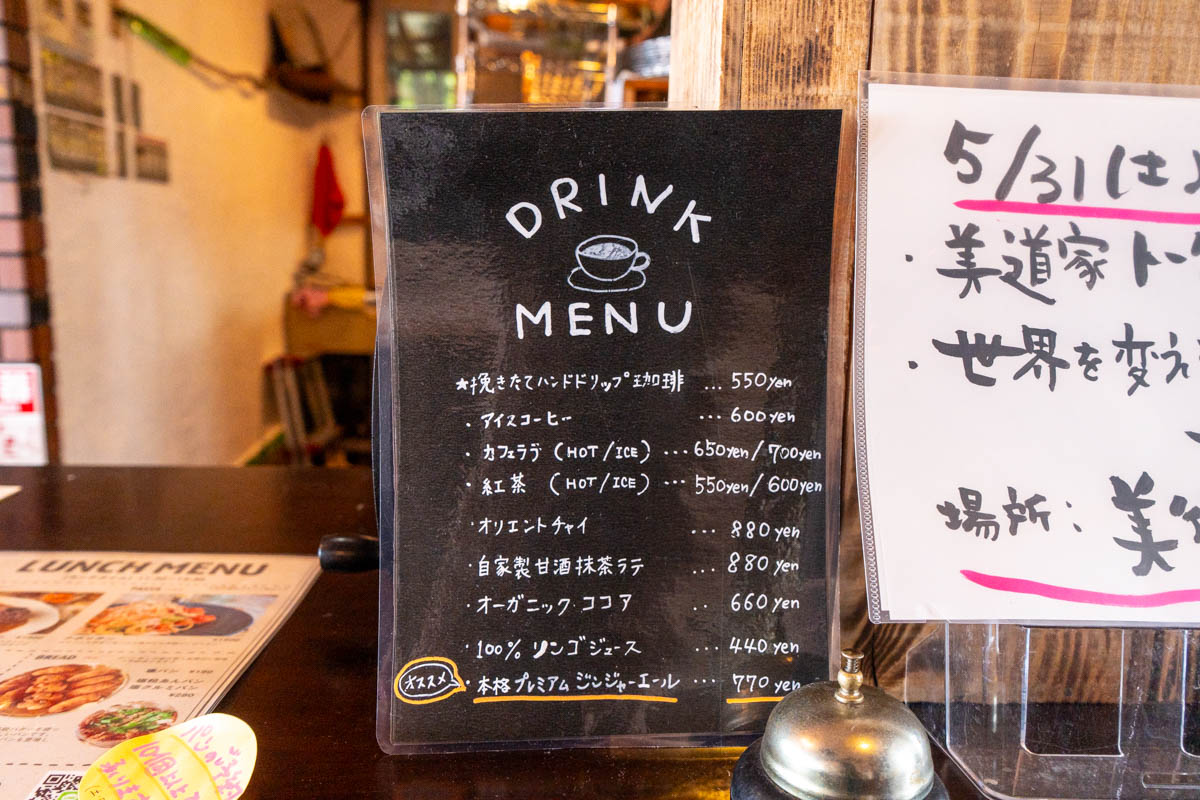 DRINK
MENU
★挽きたてハンドドリップ珈琲 ... 550yen
・アイスコーヒー ... 600yen
・カフェラテ (HOT/ICE) ... 650yen/700yen
・紅茶 (HOT/ICE) ... 550yen/600yen
・オリエントチャイ ... 880yen
・自家製甘酒抹茶ラテ ... 880yen
・オーガニックココア .. 660yen
・100% リンゴジュース ... 440yen
オススメ ・本格プレミアムジンジャーエール ... 770yen
5/31(土)
・美道家トー
・世界を変え
場所: 美
LUNCH MENU
BREAD